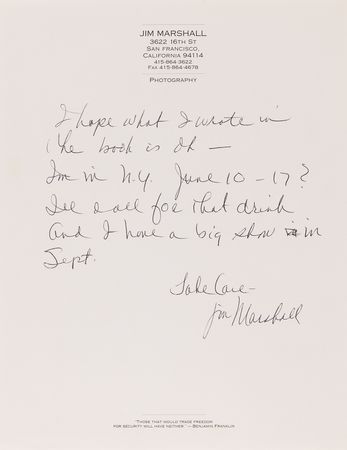 JIM MARSHALL
3622 16TH ST
SAN FRANCISCO,
CALIFORNIA 94114
415-864-3622
FAX 415-864-4678
PHOTOGRAPHY
I hope what I wrote in
the book is Ok —
I'm in N.Y. June 10 - 17?
I'll call for that drink
And I have a big show in
Sept.
Take Care-
Jim Marshall
"THOSE THAT WOULD TRADE FREEDOM
FOR SECURITY WILL HAVE NEITHER." — BENJAMIN FRANKLIN